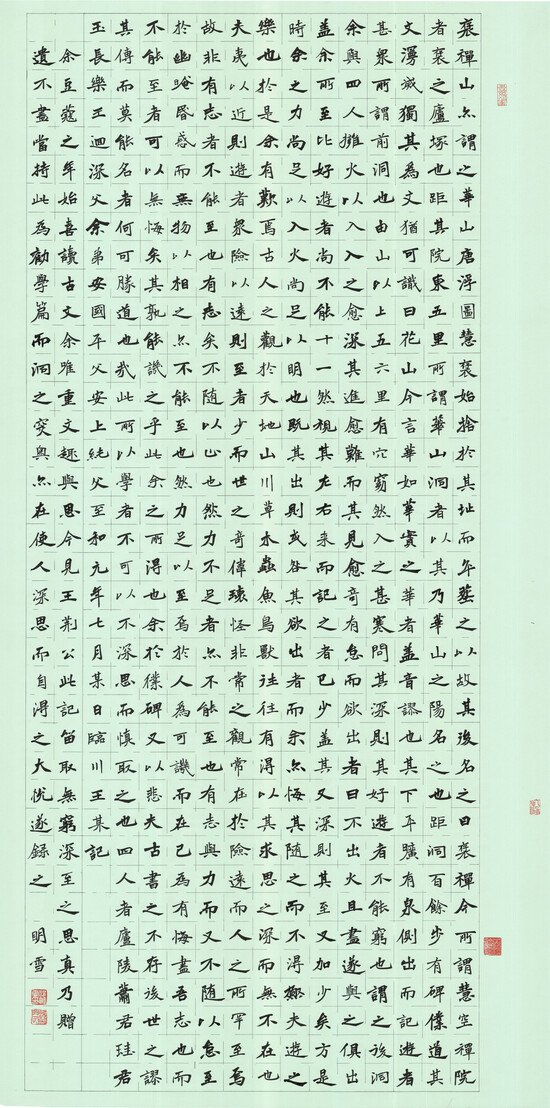 褒禪山亦謂之華山唐浮圖慧褒始捨於其址而卒葬之以故其後名之曰褒禪今所謂慧空禪院
者褒之廬塚也距其院東五里所謂華山洞者以其乃華山之陽名之也距洞百餘步有碑僕道其
文漫滅獨其為文猶可識曰花山今言華如華實之華者蓋音謬也其下平曠有泉側出而記遊者
甚眾所謂前洞也由山以上五六里有穴窈然入之甚寒問其深則其好遊者不能窮也謂之後洞
余與四人擁火以入入之愈深其進愈難而其見愈奇有怠而欲出者曰不出火且盡遂與之俱出
蓋余所至比好遊者尚不能十一然視其左右來而記之者已少蓋其又深則其至又加少矣方是
時余之力尚足以入火尚足以明也既其出則或咎其欲出者而余亦悔其隨之而不得極夫遊之
樂也於是余有歎焉古人之觀於天地山川草木蟲魚鳥獸往往有得以其求思之深而無不在也
夫夷以近則遊者眾險以遠則至者少而世之奇偉瑰怪非常之觀常在於險遠而人之所罕至焉
故非有志者不能至也有志矣不隨以止也然力不足者亦不能至也有志與力而又不隨以怠至
於幽暗昏惑而無物以相之亦不能至也然力足以至焉於人為可譏而在己為有悔盡吾志也而
不能至者可以無悔矣其孰能譏之乎此余之所得也余於僕碑又以悲夫古書之不存後世之謬
其傳而莫能名者何可勝道也哉此所以學者不可以不深思而慎取之也四人者廬陵蕭君珪君
玉長樂王迴深父余弟安國平父安上純父至和元年七月某日臨川王某記
余豆蔻之年始喜讀古文余唯重文趣與思今見王荊公此記取無窮深至之思真乃贈
遺不盡當持此為勸學篇而洞之窔奧亦在使人深思而自得之大悅遂錄之 明雪